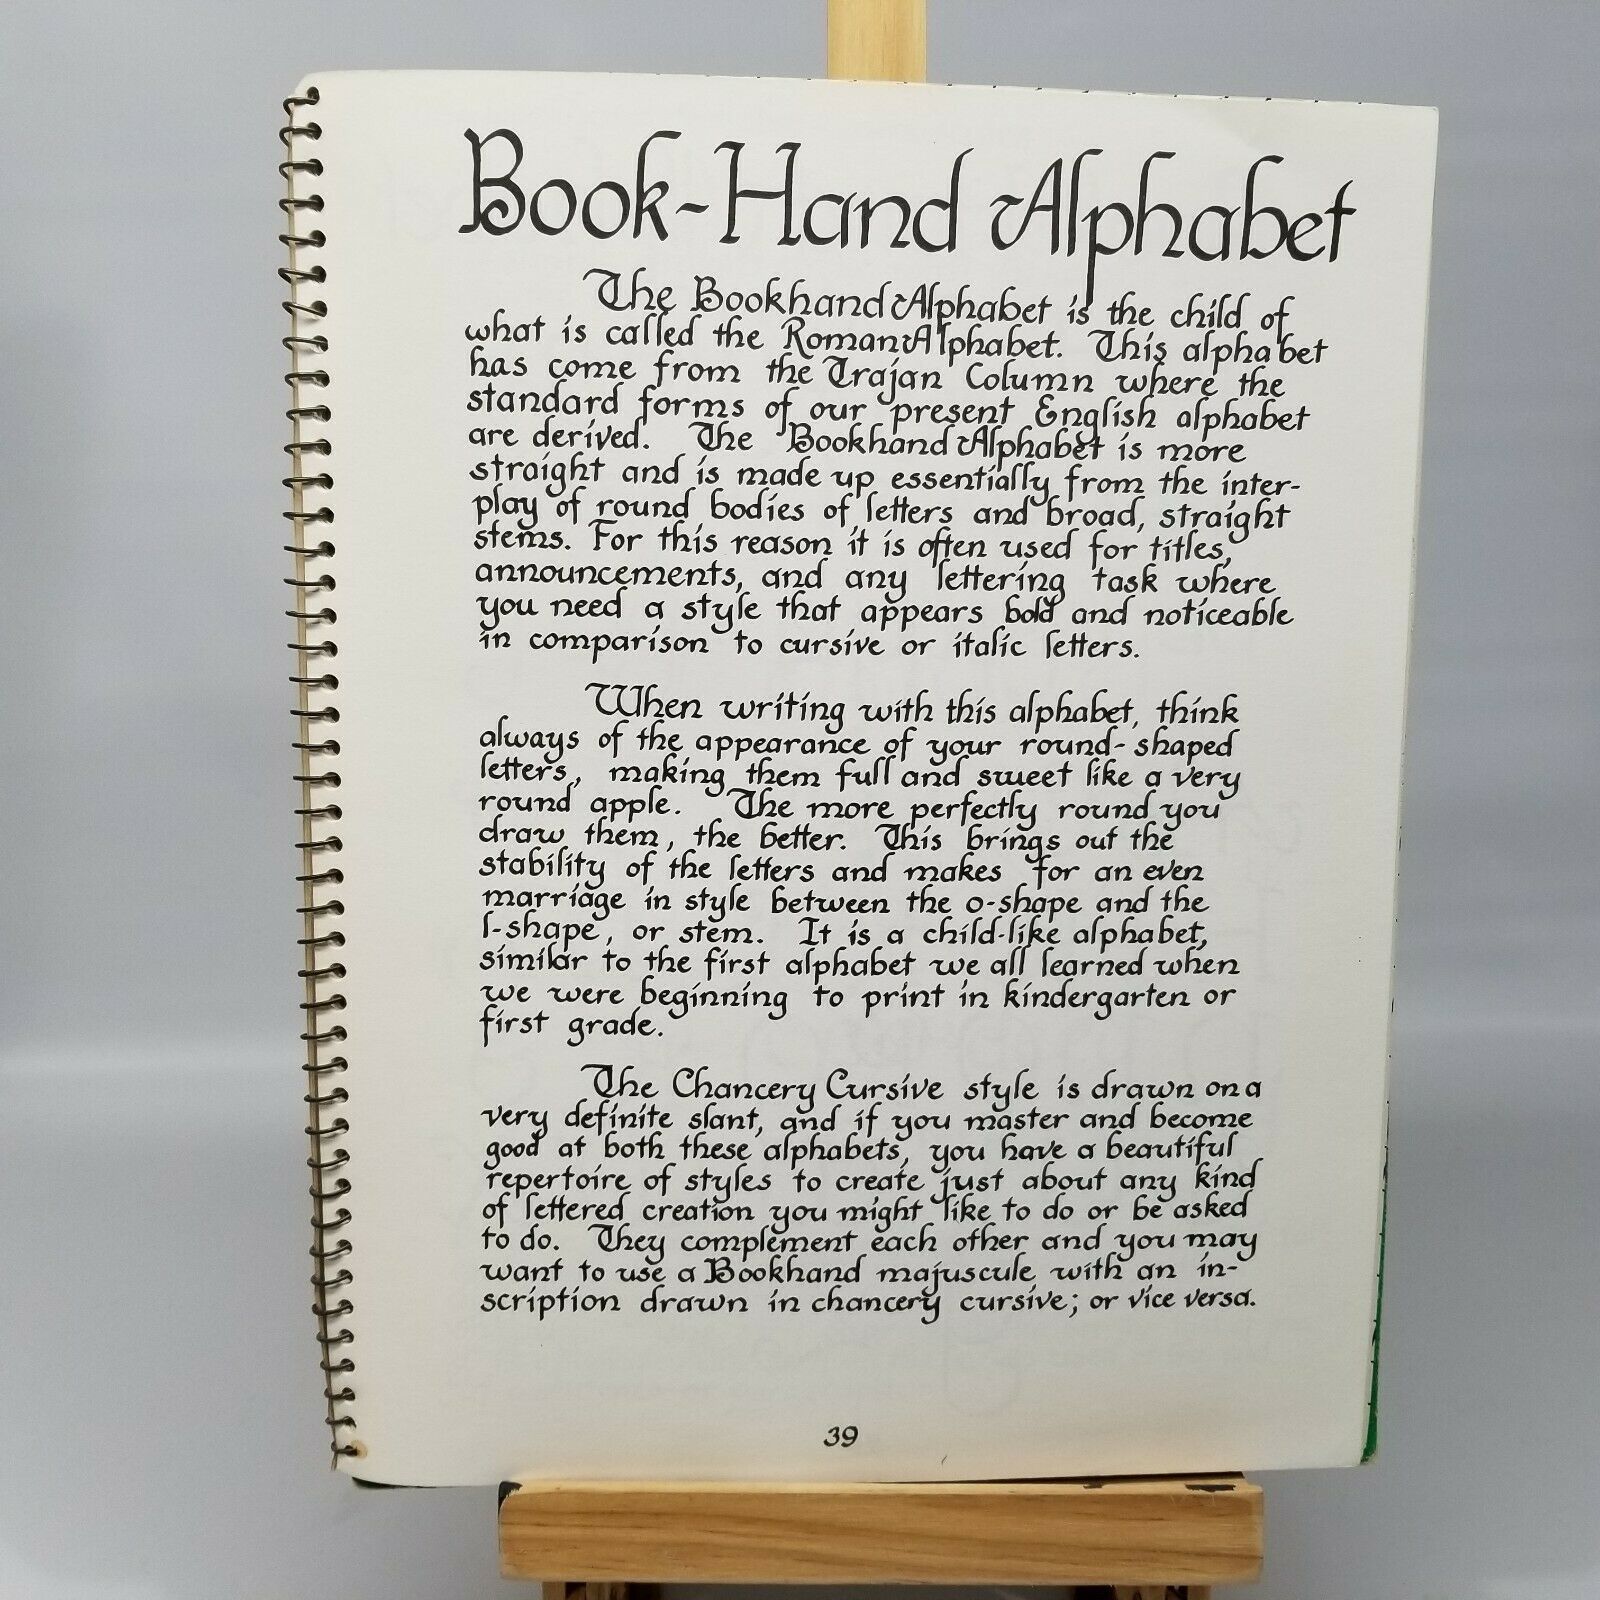 Book-Hand Alphabet
The Bookhand Alphabet is the child of
what is called the Roman Alphabet. This alphabet
has come from the Trajan Column where the
standard forms of our present English alphabet
are derived. The Bookhand Alphabet is more
straight and is made up essentially from the inter-
play of round bodies of letters and broad, straight
stems. For this reason it is often used for titles,
announcements, and any lettering task where
you need a style that appears bold and noticeable
in comparison to cursive or italic letters.
When writing with this alphabet, think
always of the appearance of your round-shaped
letters, making them full and sweet like a very
round apple. The more perfectly round you
draw them, the better. This brings out the
stability of the letters and makes for an even
marriage in style between the o-shape and the
l-shape, or stem. It is a child-like alphabet,
similar to the first alphabet we all learned when
we were beginning to print in kindergarten or
first grade.
The Chancery Cursive style is drawn on a
very definite slant, and if you master and become
good at both these alphabets, you have a beautiful
repertoire of styles to create just about any kind
of lettered creation you might like to do or be asked
to do. They complement each other and you may
want to use a Bookhand majuscule with an in-
scription drawn in chancery cursive; or vice versa.
39